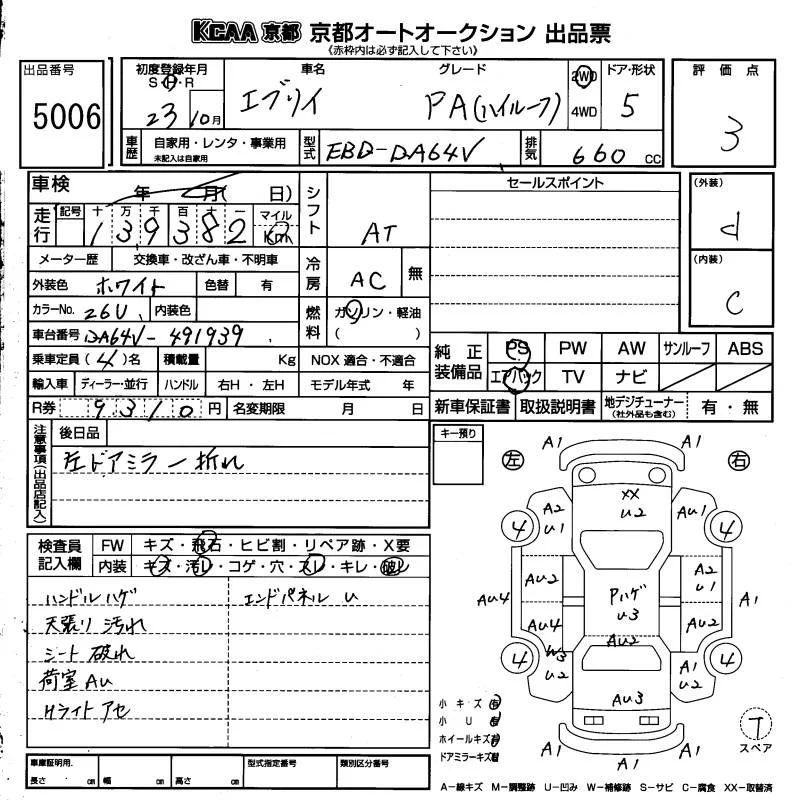 KCAA 京都 京都オートオークション 出品票
《赤枠内は必ず記入して下さい》
出品番号
5006
初度登録年月 車名 グレード 2WD ドア・形状
S・H・R
23 10月 エブリイ PA(ハイルーフ) 4WD 5
評価点
3
車歴 自家用・レンタ・事業用 型式 EBD-DA64V 排気 660 CC
未記入は自家用
車検 年 月( 日) シフト AT
セールスポイント
(外装)
d
走行 記号 十 万 千 百 十 一 マイル
139382 Km
メーター歴 交換車・改ざん車・不明車 冷房 AC 無
(内装)
C
外装色 ホワイト 色替 有
カラーNo. 26U 内装色 燃料 ガソリン・軽油
( )
車台番号 DA64V-491939
乗車定員 (4)名 積載量 Kg NOX 適合・不適合
純正装備品 PS PW AW サンルーフ ABS
エアバック TV ナビ
輸入車 ディーラー・並行 ハンドル 右H・左H モデル年式 年
R券 9310円 名変期限 月 日
新車保証書 取扱説明書 地デジチューナー 有・無
(社外品も含む)
注意事項(出品店記入)
後日品
左ドアミラー折れ
キー預り
左
右
A1
A1
XX
U2
A2
U1
AU1
4
4
AU2
A2
U1
AU4
Pハゲ
U3
A1
AU4
AU2
AU2
W3
U2
A1
U2
4
4
AU3
A1
A1
A1
T
スペア
検査員記入欄 FW キズ・飛石・ヒビ割・リペア跡・X要
内装 キズ・汚レ・コゲ・穴・スレ・キレ・破レ
ハンドルハゲ エンドパネル U
天張り 汚れ
シート 破れ
荷室 AU
Hライト アセ
小キズ有
小U有
ホイールキズ有
ドアミラーキズ有
車庫証明用. 型式指定番号 類別区分番号
長さ cm 幅 cm 高さ cm
A−線キズ M−調整跡 U−凹み W−補修跡 S−サビ C−腐食 XX−取替済